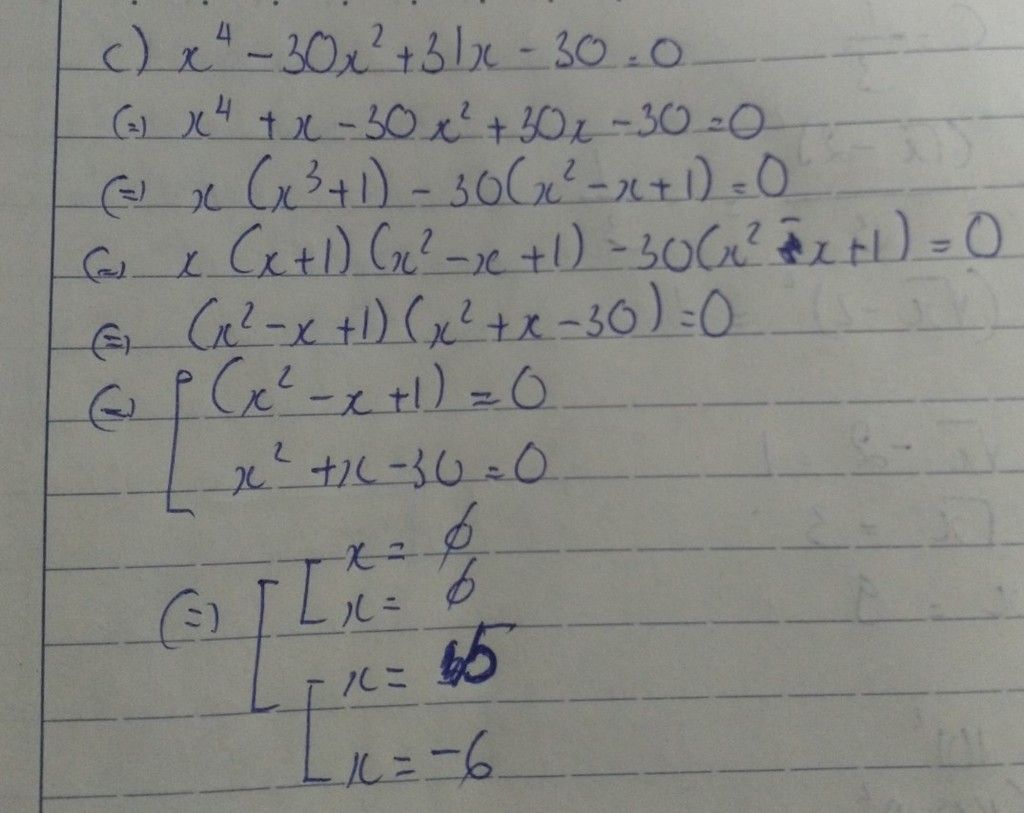 c) x⁴ - 30x² + 31x - 30 = 0
(=) x⁴ + x - 30x² + 30x - 30 = 0
(=) x (x³ + 1) - 30(x² - x + 1) = 0
(=) x (x + 1) (x² - x + 1) - 30(x² - x + 1) = 0
(=) (x² - x + 1) (x² + x - 30) = 0
(=) [ (x² - x + 1) = 0
x² + x - 30 = 0
x = ϕ
(=) [ [ x = ϕ
x = 5
[ x = -6